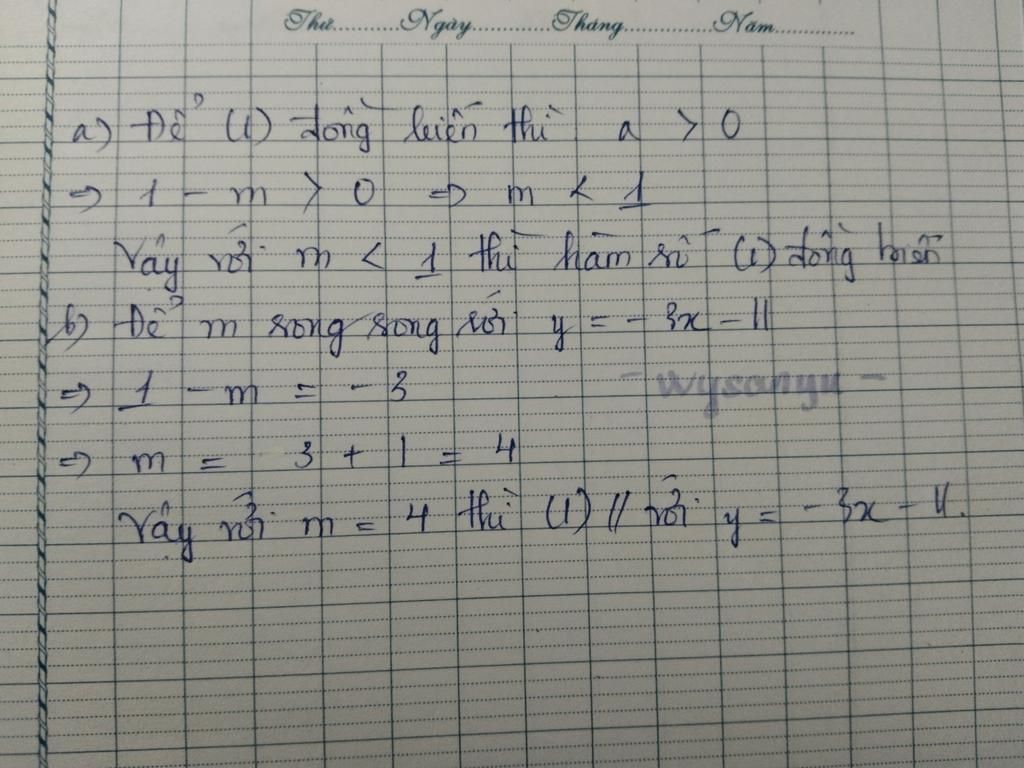 Thứ............Ngày..............Tháng...............Năm..............
a) Để (1) đồng biến thì a > 0
=> 1 - m > 0 => m < 1
Vậy với m < 1 thì hàm số (1) đồng biến
b) Để m song song với y = - 3x - 11
=> 1 - m = - 3
- wysanyu -
=> m = 3 + 1 = 4
Vậy với m = 4 thì (1) // với y = - 3x - 11.